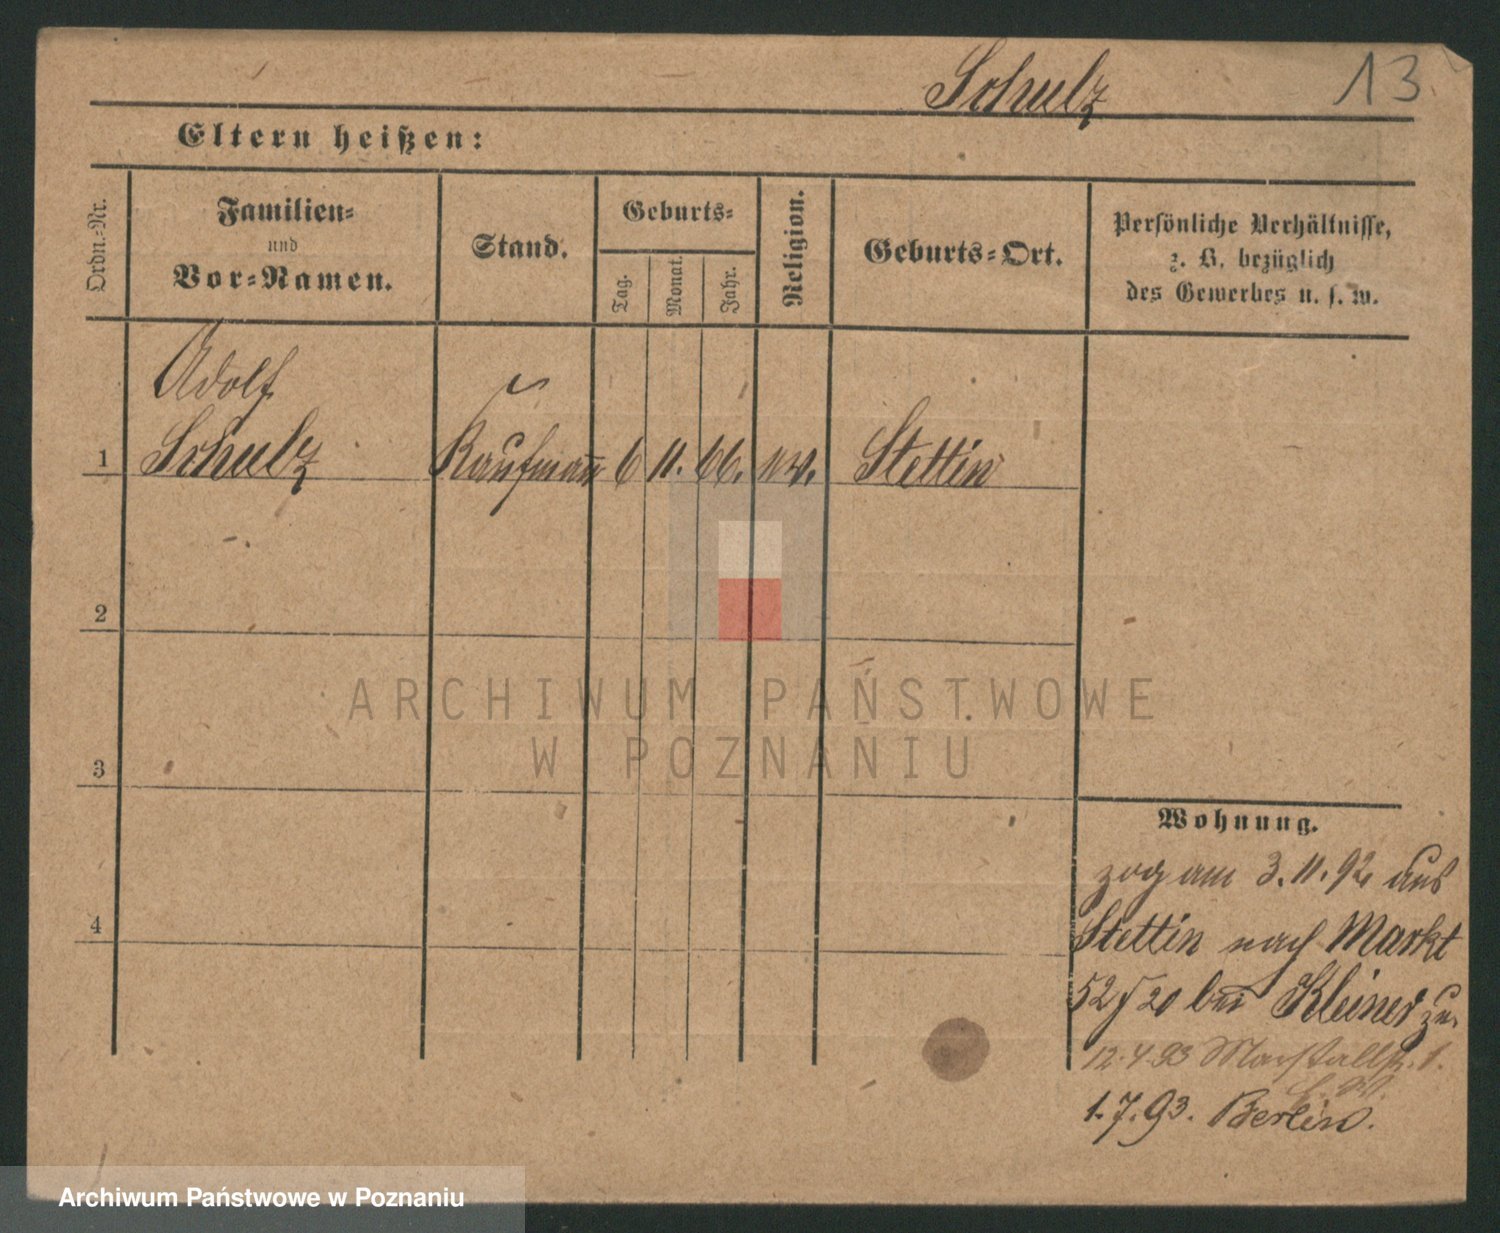 Schulz 13
Eltern heißen:
Ordn.-Nr.
Familien-
und
Vor-Namen.
Stand.
Geburts-
Tag.
Monat.
Jahr.
Religion.
Geburts-Ort.
Persönliche Verhältnisse,
z. B. bezüglich
des Gewerbes u. s. w.
Adolf
1 Schulz Kaufmann 6 11. 66. Stettin
2
3
4
ARCHIWUM PAŃSTWOWE
W POZNANIU
Wohnung.
zog am 3.11.92 aus
Stettin nach Markt
52 20 bei Kleiner zu.
12.4.93 Marstallstr. 1.
1.7.93. Berlin.
Archiwum Państwowe w Poznaniu